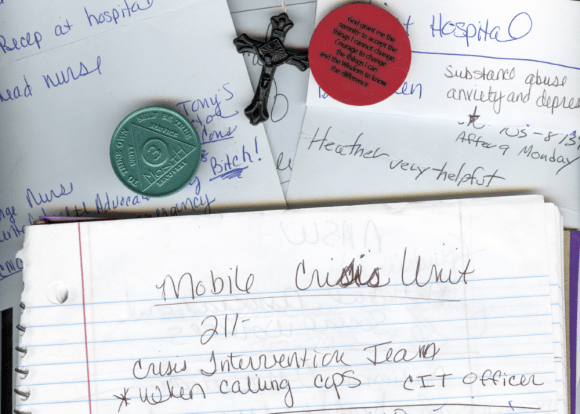 Recep at hospital
ead nurse
Tony's
Bitch!
Nurse
TO THINE OWN SELF BE TRUE
UNITY
SERVICE
3
MONTH
RECOVERY
God grant me the
serenity to accept the
things I cannot change,
Courage to change
the things I can
and the Wisdom to know
the difference.
t Hospital
Substance abuse
anxiety and depres
After 9 Monday
Heather very helpful
Mobile Crisis Unit
211-
Crisis Intervention Team
*when calling cops CIT Officer